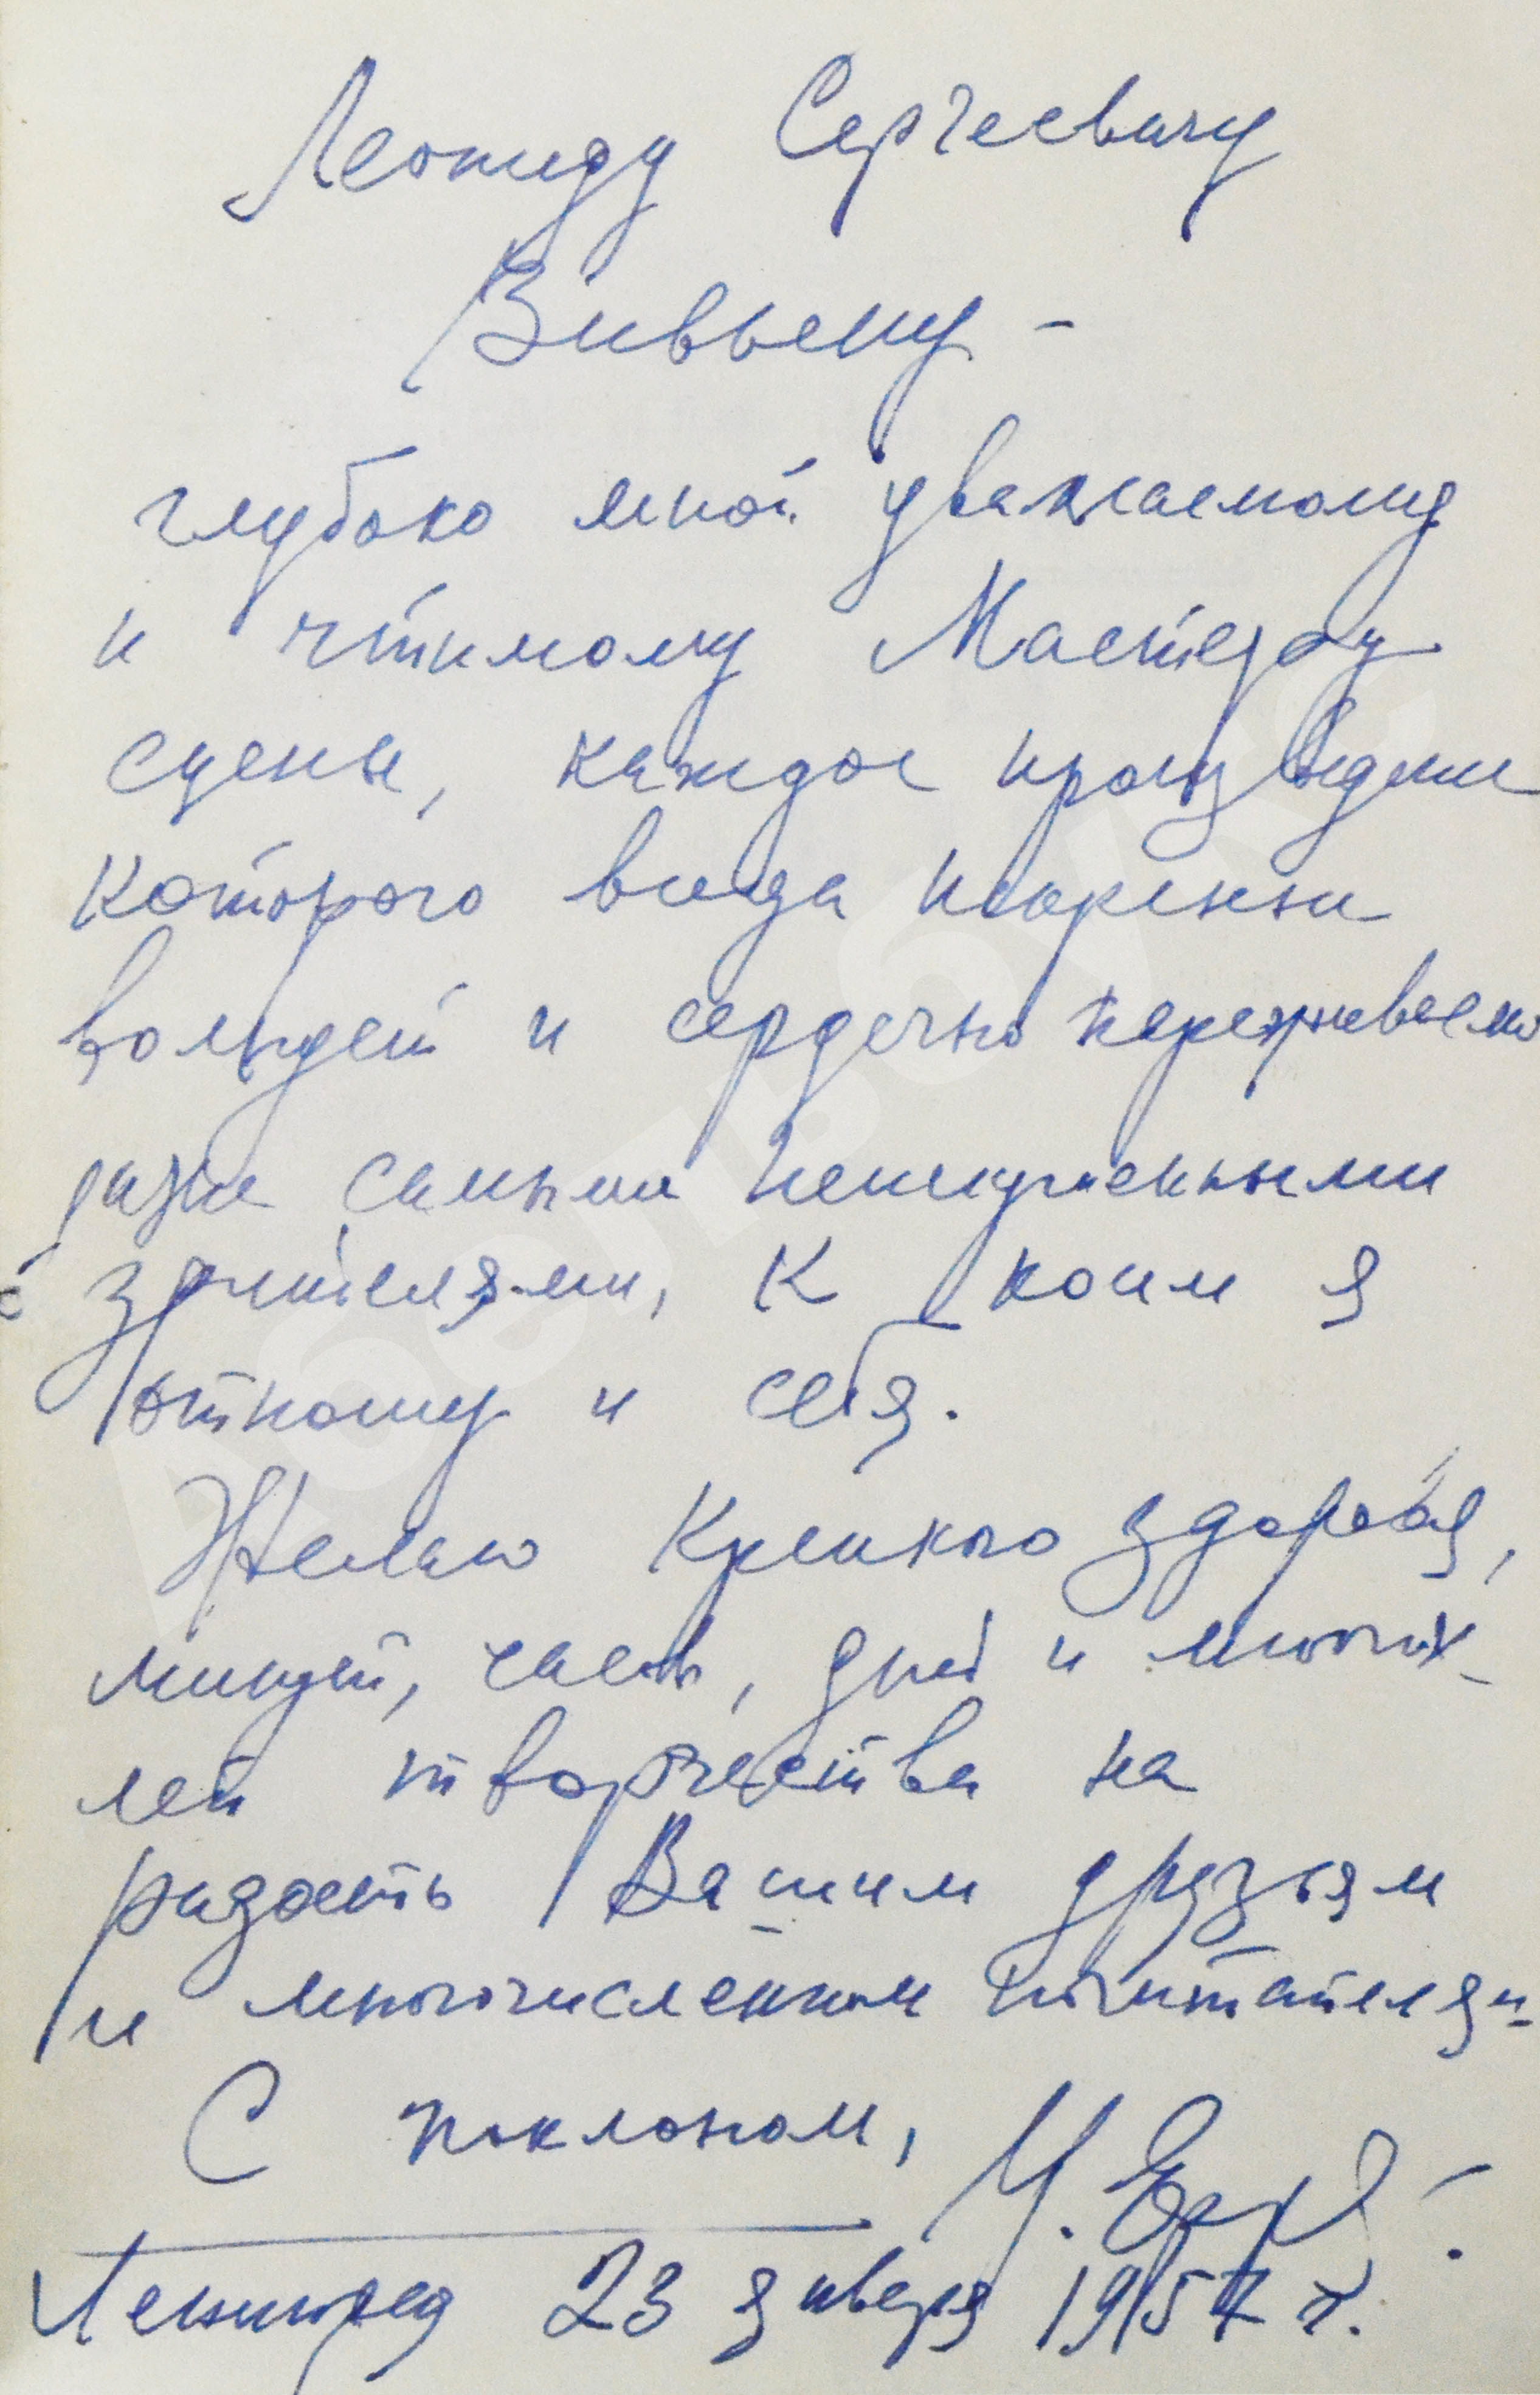 Леониду Сергеевичу
Вивьену -
глубоко мной уважаемому
и чтимому Мастеру
сцены, каждое произведение
которого всегда искренне
волнует и сердечно переживаемо
даже самыми неискушенными
зрителями, к коим я
отношу и себя.
Желаю Крепкого здоровья,
минут, часов, дней и многих
лет творчества на
радость Вашим друзьям
и многочисленным почитателям
С поклоном,
Ленинград 23 января 1957 г.
АбелвБукс